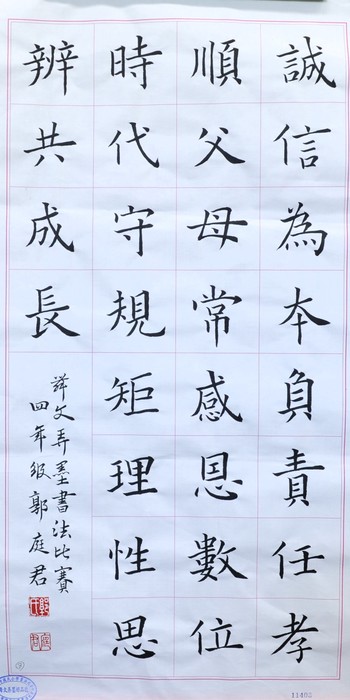 誠信為本負責任孝
順父母常感恩數位
時代守規矩理性思
辨共成長
譯文弄墨書法比賽
四年級郭庭君
11403